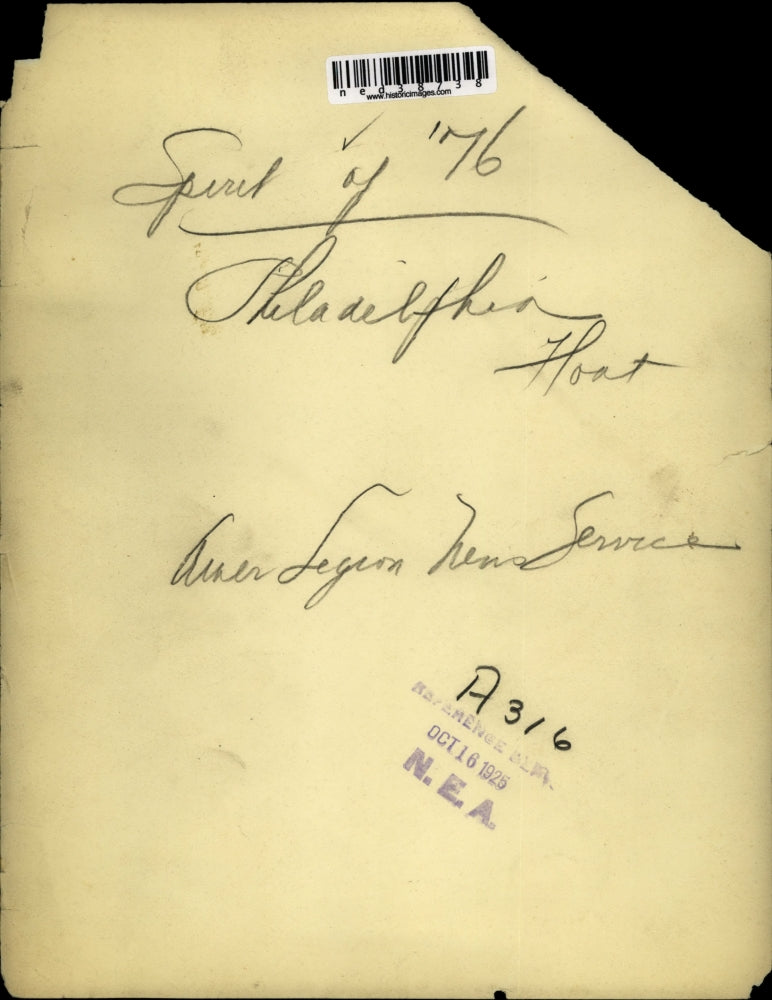 ned38738
www.historicimages.com
Spirit of '76
Philadelphia
Float
Amer Legion News Service
A316
REFERENCE
OCT 16 1925
N.E.A.